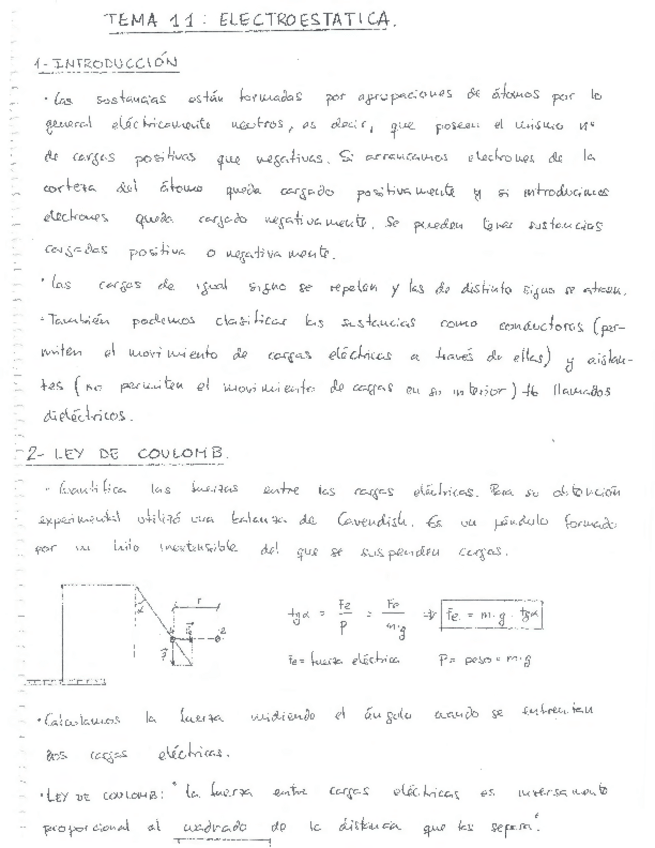 TEMA 11: ELECTROESTATICA.
1-INTRODUCCIÓN
· Las sustancias están formadas por agrupaciones de átomos por lo
general eléctricamente neutros, es decir, que poseen el mismo nº
de cargas positivas que negativas. Si arrancamos electrones de la
corteza del átomo queda cargado positivamente y si introducimos
electrones queda cargado negativamente. Se pueden tener sustancias
cargadas positiva o negativamente.
· Las cargas de igual signo se repelen y las de distinto signo se atraen.
· También podemos clasificar las sustancias como conductoras (per-
miten el movimiento de cargas eléctricas a través de ellas) y aislan-
tes (no permiten el movimiento de cargas en su interior) tb llamados
dieléctricos.
2- LEY DE COULOMB.
· Cuantifica las fuerzas entre las cargas eléctricas. Para su obtención
experimental utilizó una balanza de Cavendish. Es un péndulo formado
por un hilo inextensible del que se suspenden cargas.
α r 2 P
tgα = Fe/P = Fe/m·g ⇒ Fe = m·g·tgα
Fe = fuerza eléctrica P = peso = m·g
· Calculamos la fuerza midiendo el ángulo cuando se enfrentan
dos cargas eléctricas.
· LEY DE COULOMB: "La fuerza entre cargas eléctricas es inversamente
proporcional al cuadrado de la distancia que las separa".